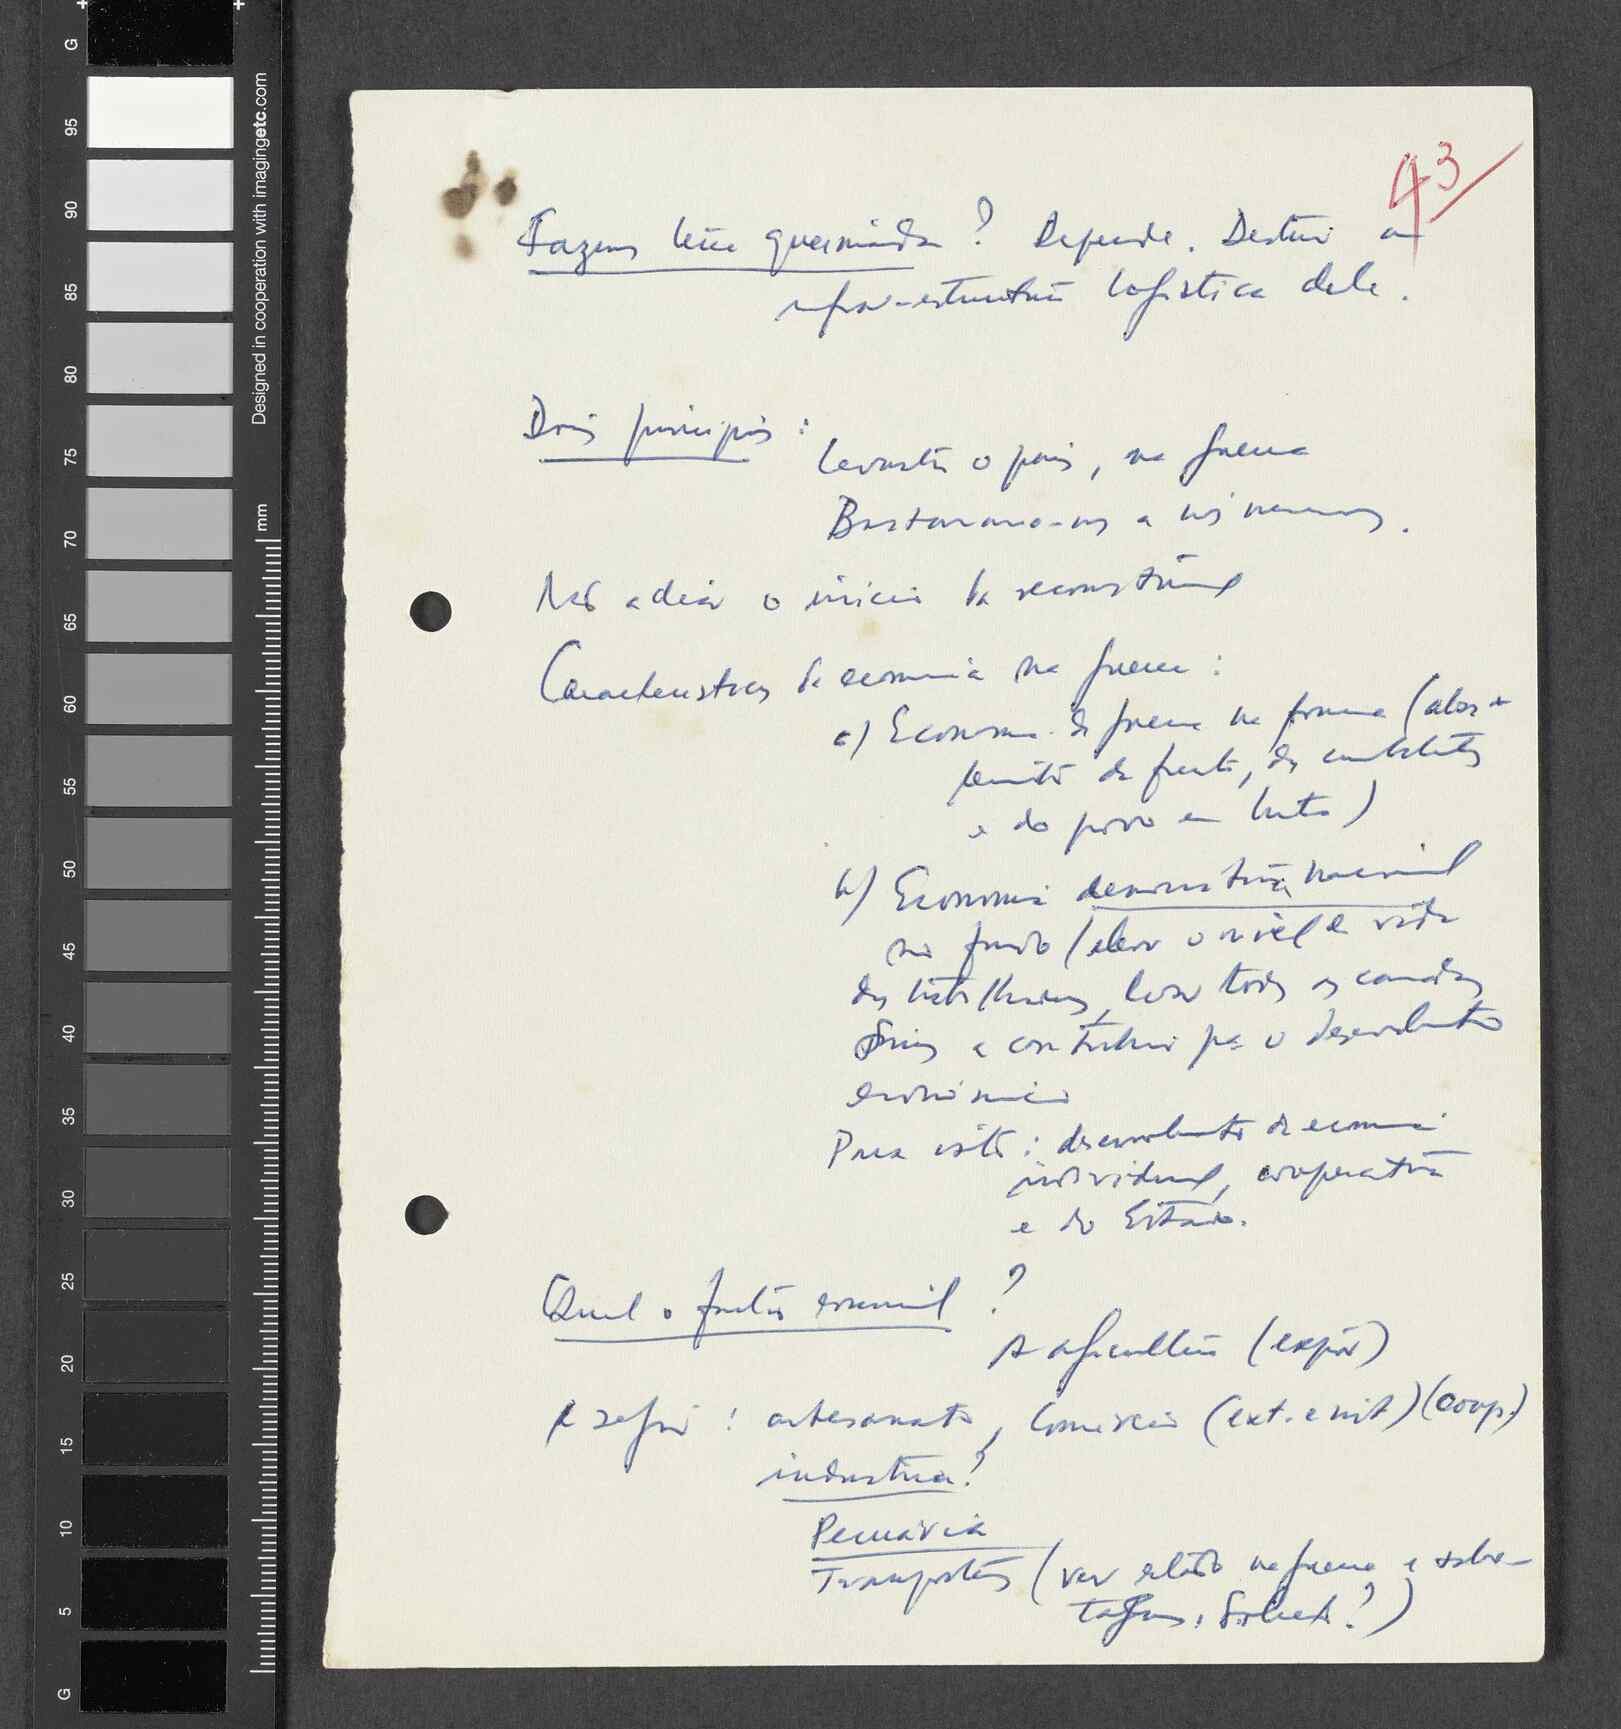 43
Fazemos terra queimada? Depende. Destruir a
infra-estrutura logística dele.
Dois princípios:
Levantar o país, na guerra
Bastarmo-nos a nós mesmos.
Não adiar o início da reconstrução
Características da economia na guerra:
a) Economia de guerra na forma (abas-
tecimento da frente, dos combatentes
e do povo em luta)
b) Economia democrática, nacional
no fundo (elevar o nível de vida
dos trabalhadores, levar todas as camadas
sociais a contribuir pa o desenvolvimento
económico
Para isto: desenvolvimento da economia
individual, cooperativa
e do Estado.
Qual o factor essencial?
A agricultura (expôr)
A seguir: artesanato, comércio (ext. e int.) (coop.)
indústria?
Pecuária
Transportes (ver relação na guerra e sabo-
tagens.
Designed in cooperation with imagingetc.com
mm
G
95
90
85
80
75
70
65
60
55
50
45
40
35
30
25
20
15
10
5
G